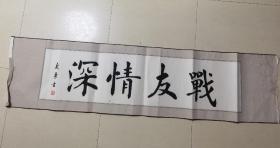 戰友情深